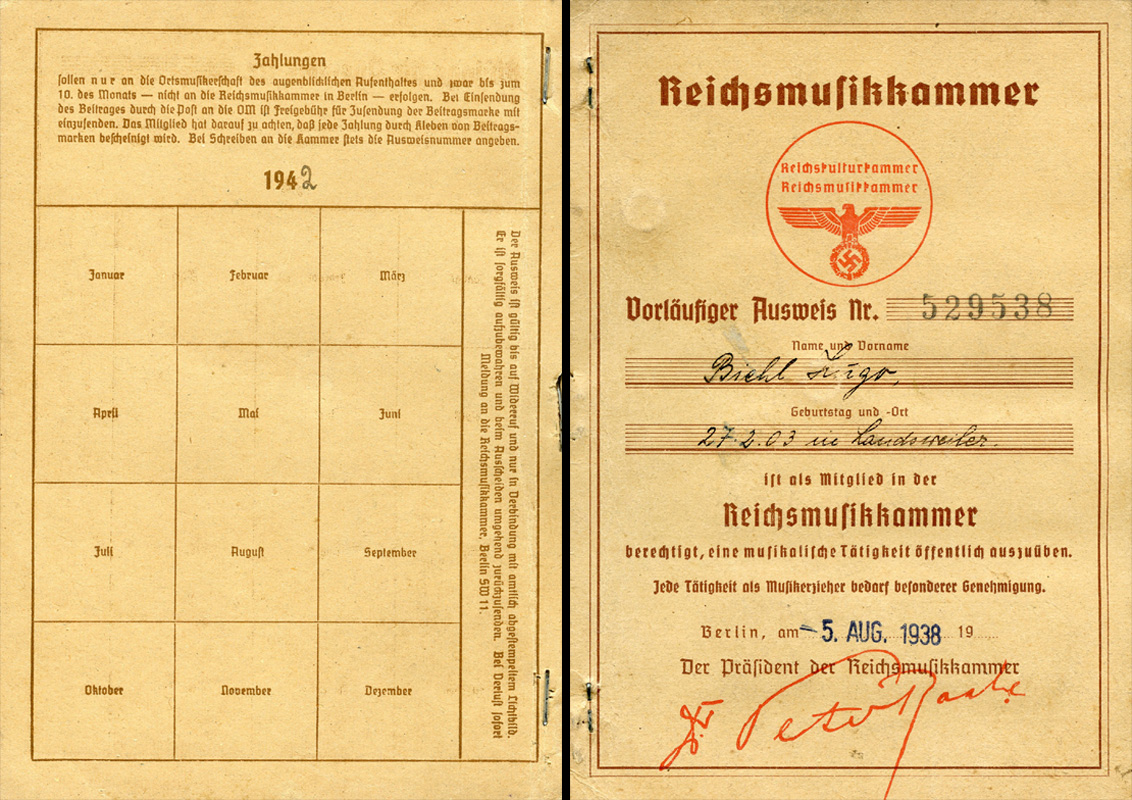 Zahlungen
sollen nur an die Ortsmusikerschaft des augenblicklichen Aufenthaltes und zwar bis zum
10. des Monats — nicht an die Reichsmusikkammer in Berlin — erfolgen. Bei Einsendung
des Beitrages durch die Post an die OM ist Freigebühr für Zusendung der Beitragsmarke mit
einzusenden. Das Mitglied hat darauf zu achten, daß jede Zahlung durch Kleben von Beitrags-
marken bescheinigt wird. Bei Schreiben an die Kammer stets die Ausweisnummer angeben.
1942
Januar
Februar
März
April
Mai
Juni
Juli
August
September
Oktober
November
Dezember
Der Ausweis ist gültig bis auf Widerruf und nur in Verbindung mit amtlich abgestempeltem Lichtbild.
Er ist sorgfältig aufzubewahren und beim Ausscheiden umgehend zurückzusenden. Bei Verlust sofort
Meldung an die Reichsmusikkammer, Berlin SW 11.
Reichsmusikkammer
Reichskulturkammer
Reichsmusikkammer
Vorläufiger Ausweis Nr. 529538
Name und Vorname
Biehl Hugo,
Geburtstag und -Ort
27.2.03 in Landsweiler.
ist als Mitglied in der
Reichsmusikkammer
berechtigt, eine musikalische Tätigkeit öffentlich auszuüben.
Jede Tätigkeit als Musikerzieher bedarf besonderer Genehmigung.
Berlin, am – 5. AUG. 1938 19
Der Präsident der Reichsmusikkammer
Dr. Peter Raabe